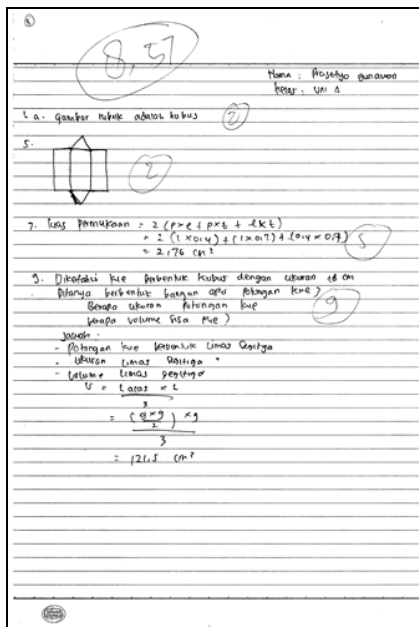 8,57
Nama : Prasetyo Gunawan
kelas : VIII A
1. a. Gambar kubuk adalah kubus
2
5.
2
7. luas permukaan = 2 (p×l + p×t + l×t)
= 2 (1 × 0,4) + (1 × 0,7) + (0,4 × 0,7)
= 2,76 cm²
5
9. Diketahui kue berbentuk kubus dengan ukuran 18 cm
Ditanya berbentuk bangun apa potongan kue?
Berapa ukuran potongan kue
berapa volume sisa kue?
9
Jawab :
- Potongan kue berbentuk limas segitiga
- ukuran limas segitiga
- Volume limas segitiga
V = L alas × t
3
= (9×9
2) × 9
3
= 121,5 cm³